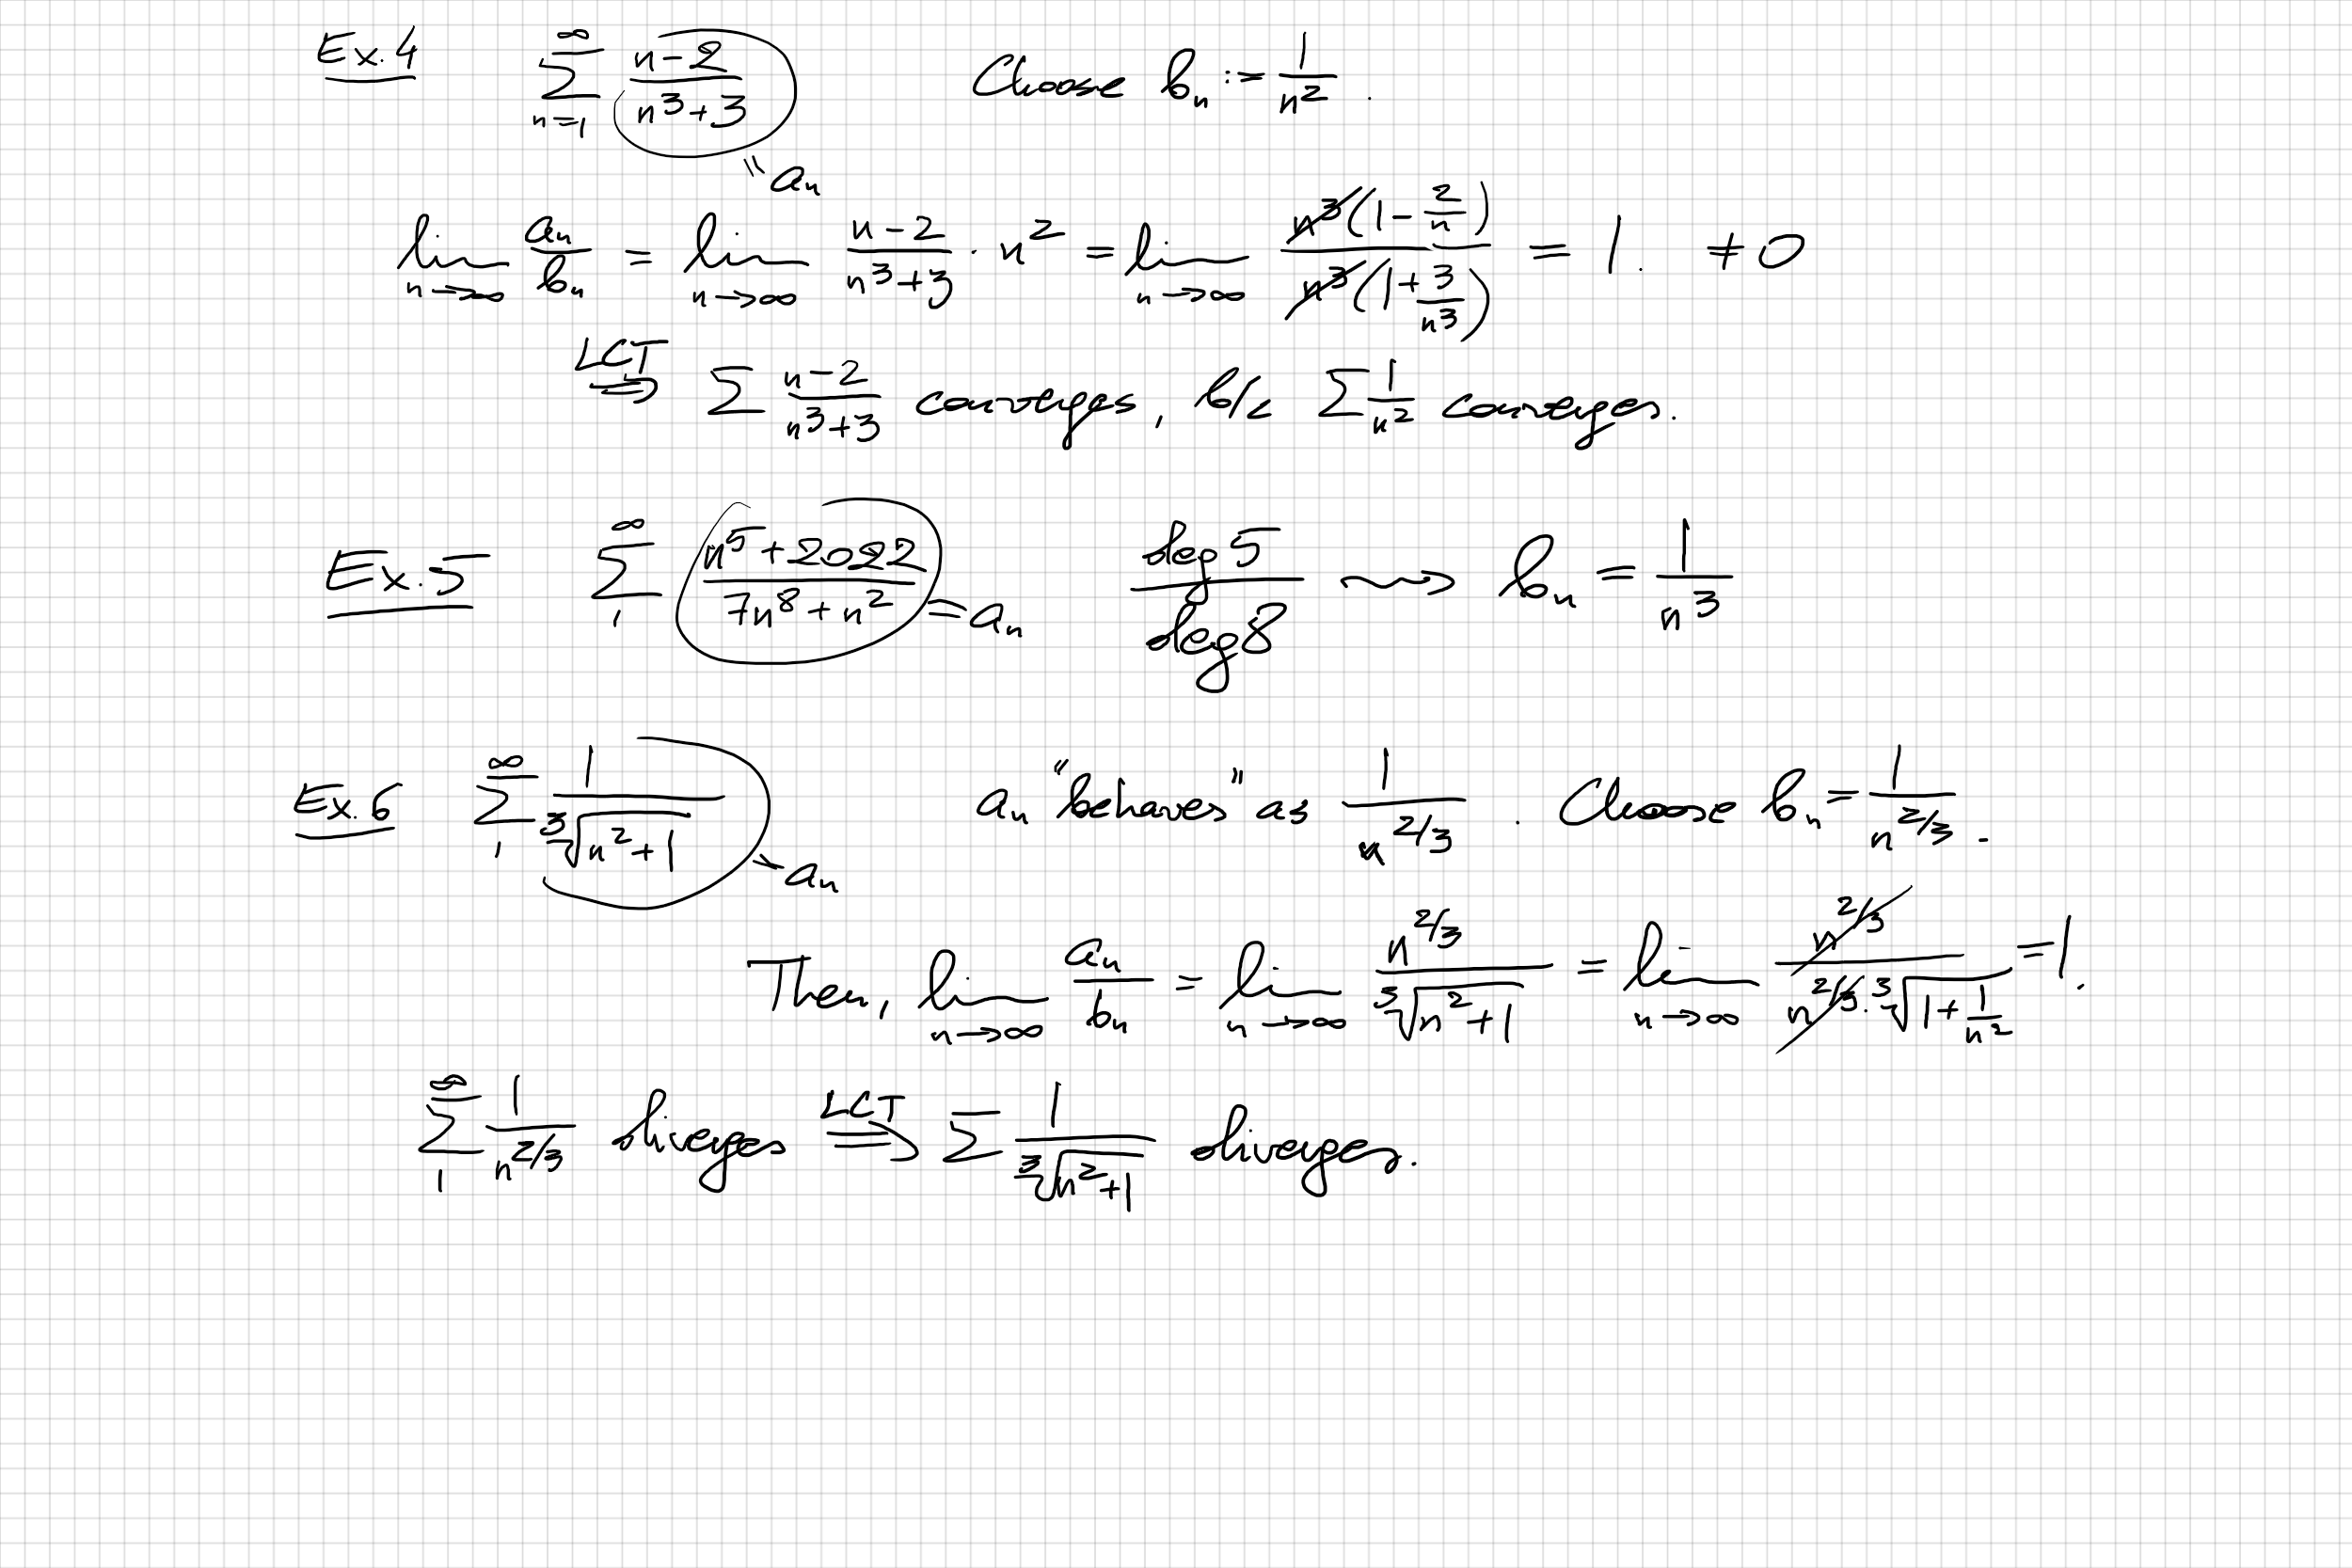 Ex. 4 ∑_{n=1}^{∞} (n-2)/(n³+3) = aₙ Choose bₙ := 1/n².
lim_{n→∞} aₙ/bₙ = lim_{n→∞} (n-2)/(n³+3) · n² = lim_{n→∞} n³(1 - 2/n) / n³(1 + 3/n³) = 1. ≠ 0
LCT ⟹ ∑ (n-2)/(n³+3) converges, b/c ∑ 1/n² converges.
Ex. 5 ∑_{1}^{∞} (n⁵+2022)/(7n⁸+n²) = aₙ deg 5/deg 8 ⇝ bₙ = 1/n³
Ex. 6 ∑_{1}^{∞} 1/∛(n²+1) aₙ aₙ "behaves" as 1/n^{2/3}. Choose bₙ = 1/n^{2/3}.
Then, lim_{n→∞} aₙ/bₙ = lim_{n→∞} n^{2/3}/∛(n²+1) = lim_{n→∞} n^{2/3}/(n^{2/3}·∛(1+1/n²)) = 1.
∑_{1}^{∞} 1/n^{2/3} diverges LCT ⟹ ∑ 1/∛(n²+1) diverges.